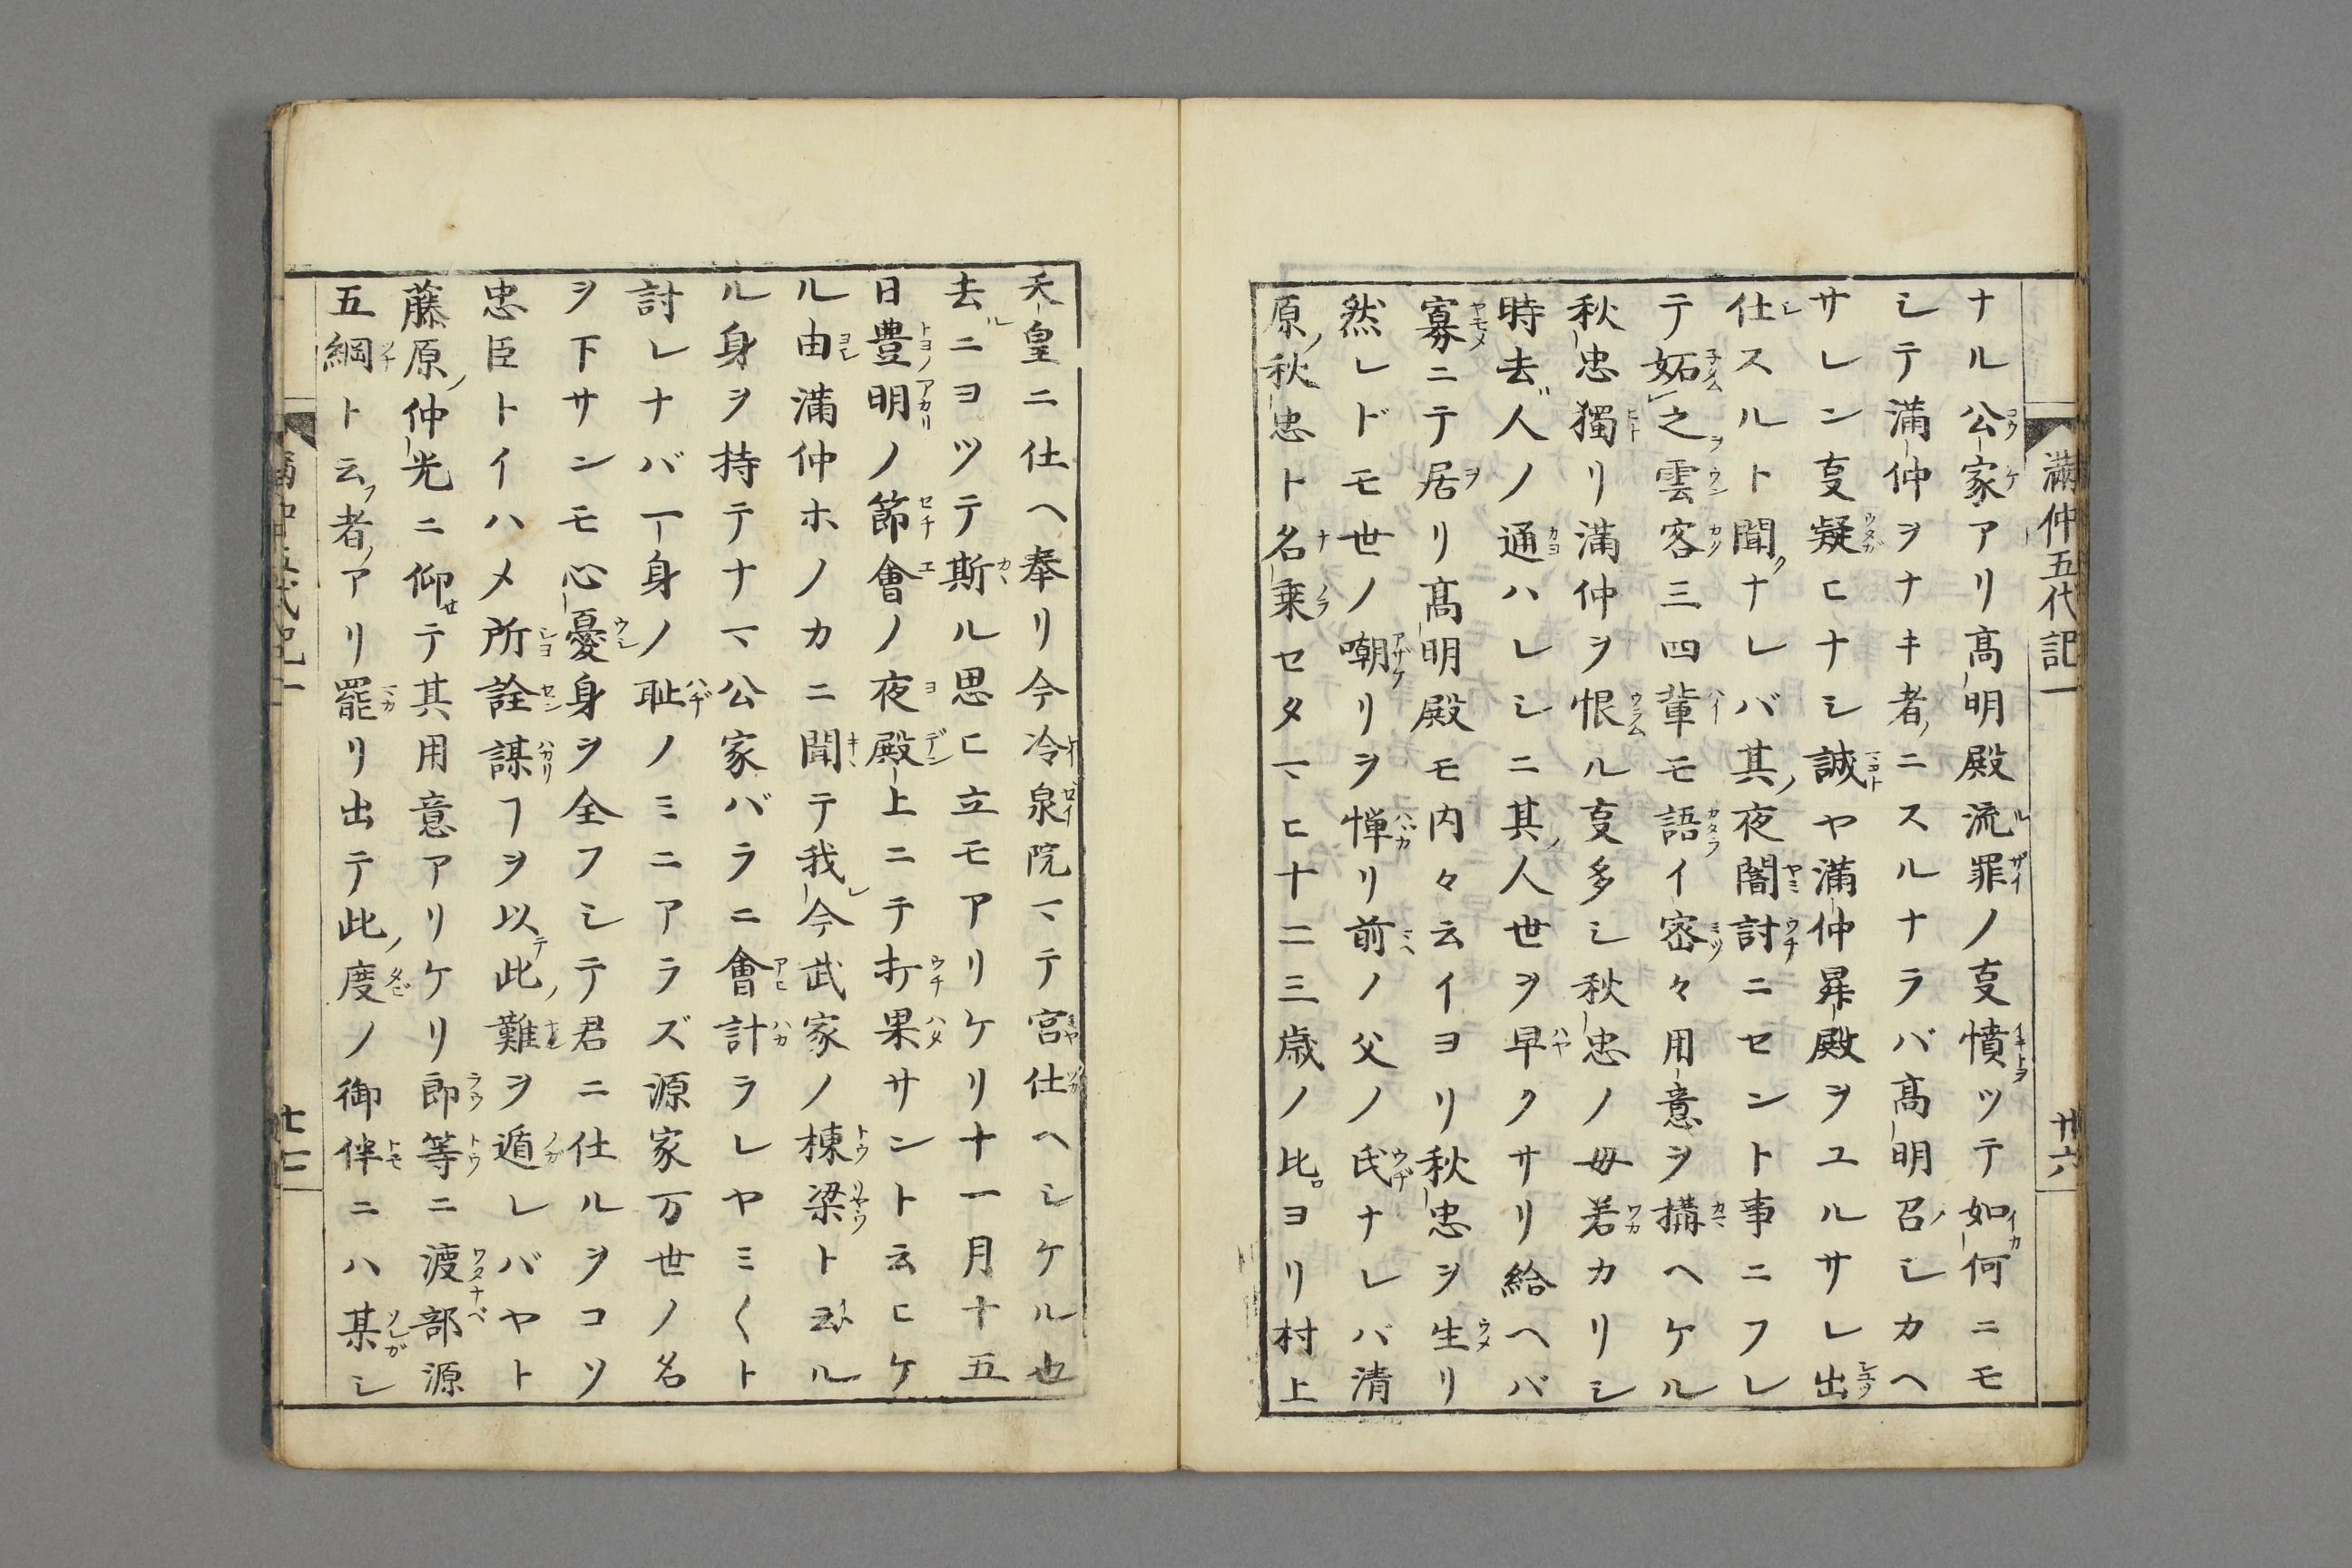 満仲五代記一　廿六
ナル公家アリ髙明殿流罪ノ㕝憤ツテ如何ニモ
シテ満仲ヲナキ者ニスルナラバ髙明召シカヘ
サレン㕝疑ヒナシ誠ヤ満仲昇殿ヲユルサレ出
仕スルト聞ナレバ其夜闇討ニセント事ニフレ
テ妬之雲客三四輩モ語イ密々用意ヲ搆ヘケル
秋忠獨リ満仲ヲ恨ル㕝多シ秋忠ノ母若カリシ
時去人ノ通ハレシニ其人世ヲ早クサリ給ヘバ
寡ニテ居リ髙明殿モ内々云イヨリ秋忠ヲ生リ
然レドモ世ノ嘲リヲ憚リ前ノ父ノ氏ナレバ清
原秋忠ト名乗セタマヒ十二三歳ノ比ヨリ村上
天皇ニ仕ヘ奉リ今冷泉院マテ宮仕ヘシケル也
去ニヨツテ斯ル思ヒ立モアリケリ十一月十五
日豊明ノ節會ノ夜殿上ニテ打果サント云ヒケ
ル由満仲ホノカニ聞テ我今武家ノ棟梁ト云ル
ル身ヲ持テナマ公家バラニ會計ラレヤミ〱ト
討レナバ一身ノ耻ノミニアラズ源家万世ノ名
ヲ下サンモ心憂身ヲ全フシテ君ニ仕ルヲコソ
忠臣トイハメ所詮謀フヲ以此難ヲ遁レバヤト
藤原仲光ニ仰テ其用意アリケリ郎等ニ渡部源
五綱ト云者アリ罷リ出テ此度ノ御伴ニハ某シ